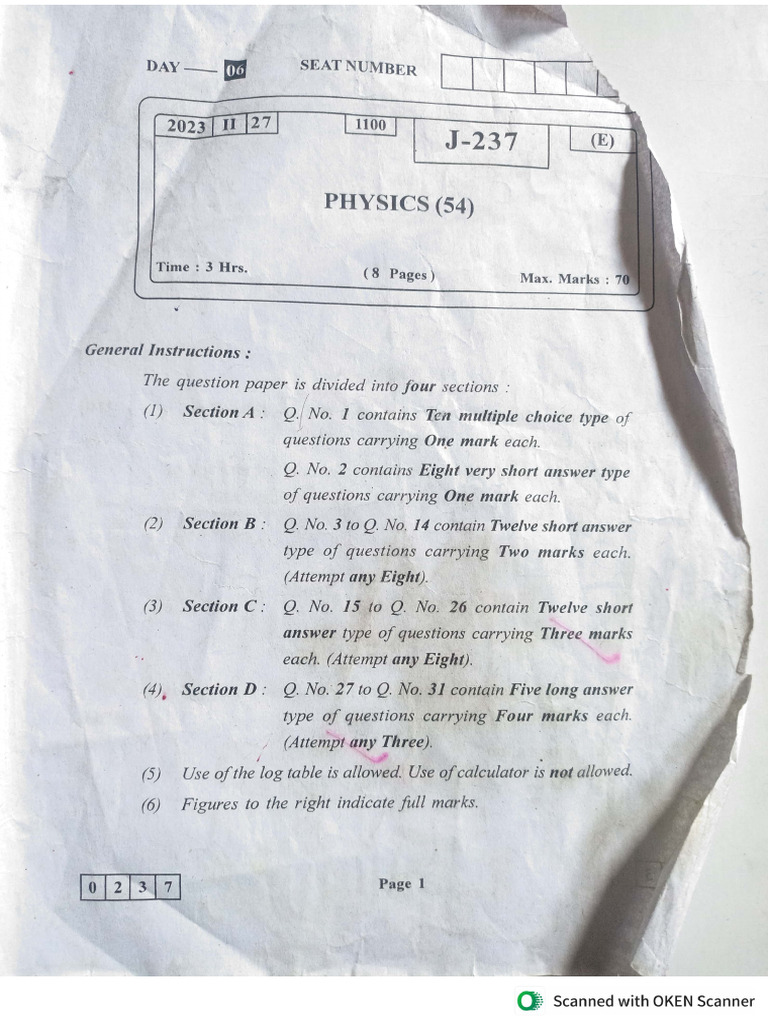 DAY — 06 SEAT NUMBER
2023 II 27 1100 J-237 (E)
PHYSICS (54)
Time : 3 Hrs. ( 8 Pages ) Max. Marks : 70
General Instructions :
The question paper is divided into four sections :
(1) Section A : Q. No. 1 contains Ten multiple choice type of
questions carrying One mark each.
Q. No. 2 contains Eight very short answer type
of questions carrying One mark each.
(2) Section B : Q. No. 3 to Q. No. 14 contain Twelve short answer
type of questions carrying Two marks each.
(Attempt any Eight).
(3) Section C : Q. No. 15 to Q. No. 26 contain Twelve short
answer type of questions carrying Three marks
each. (Attempt any Eight).
(4) Section D : Q. No. 27 to Q. No. 31 contain Five long answer
type of questions carrying Four marks each.
(Attempt any Three).
(5) Use of the log table is allowed. Use of calculator is not allowed.
(6) Figures to the right indicate full marks.
0 2 3 7 Page 1
Scanned with OKEN Scanner